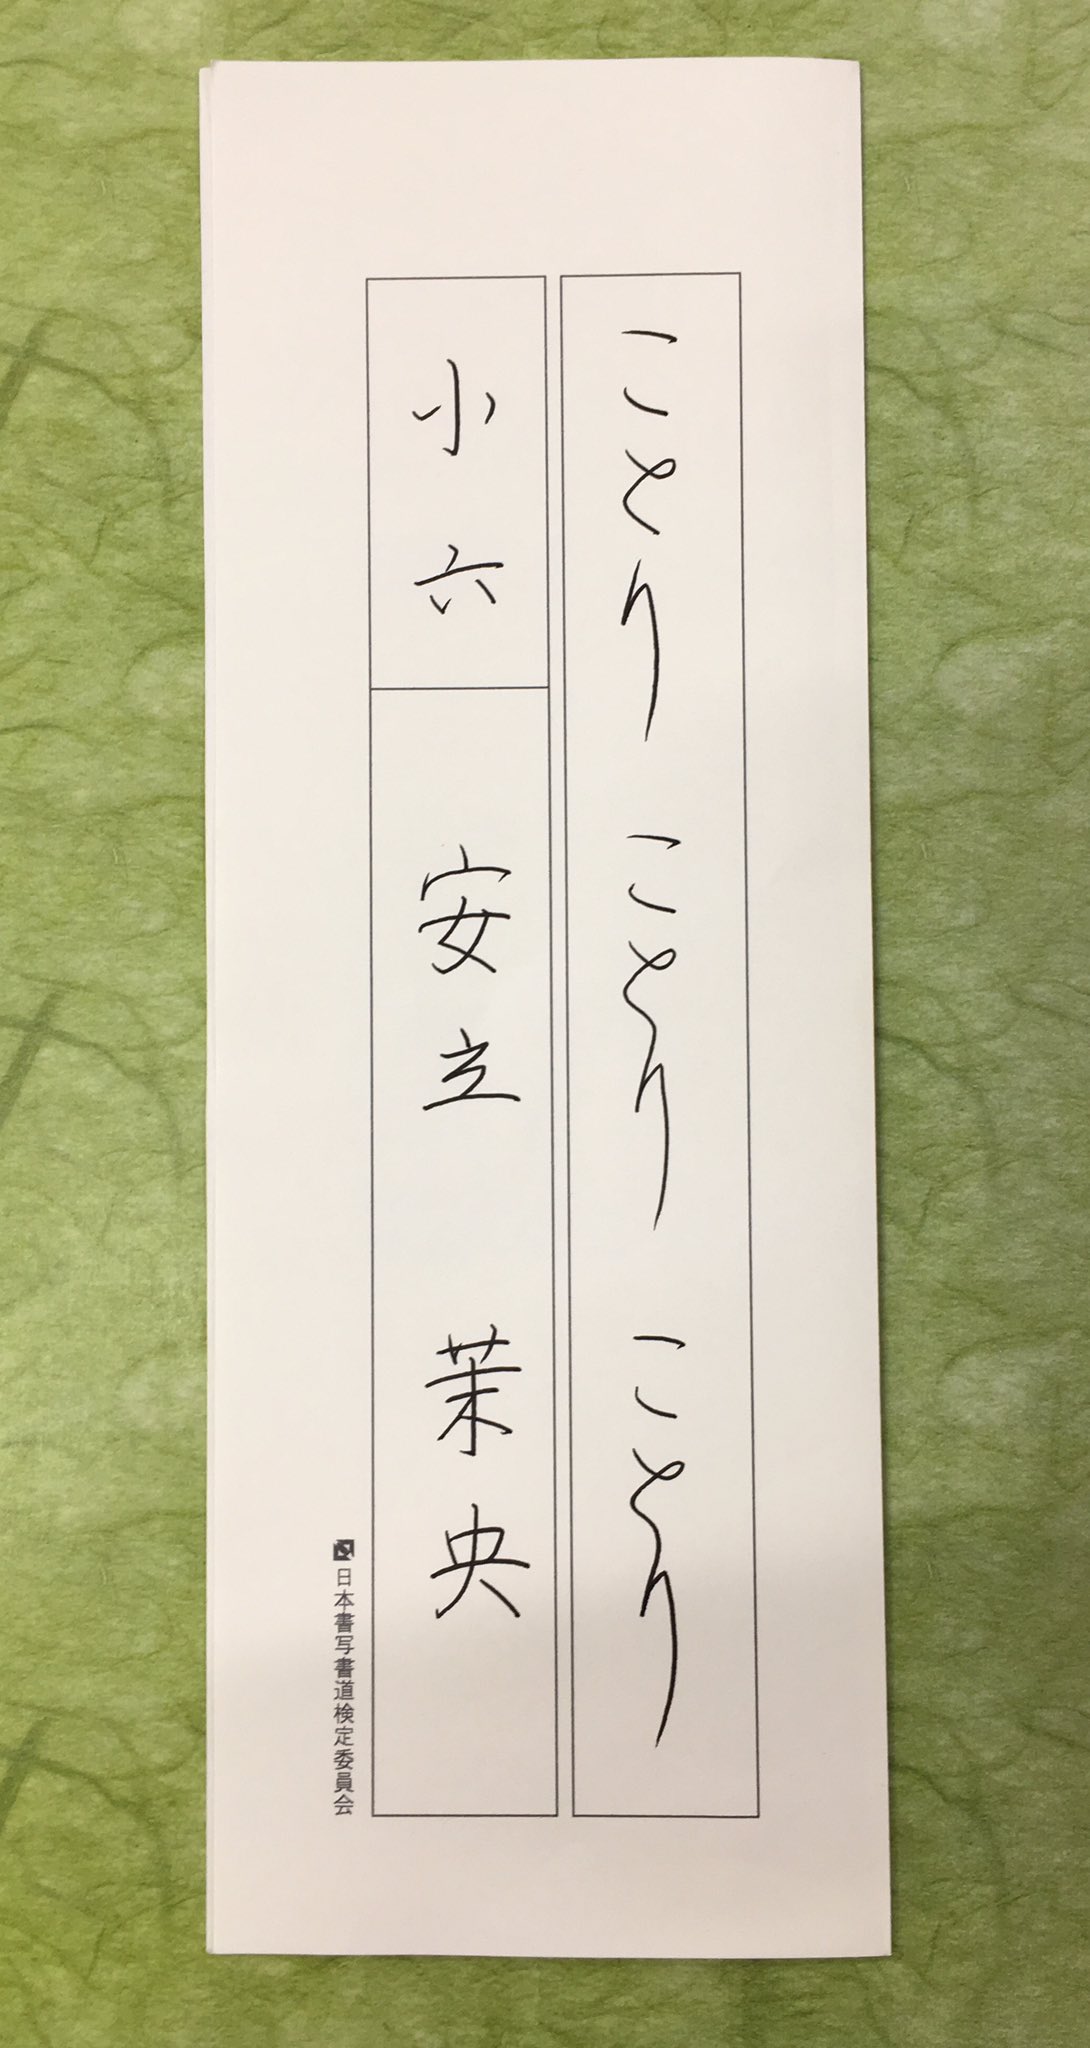 ことり ことり ことり
小六 安立 茉央
日本書写書道検定委員会